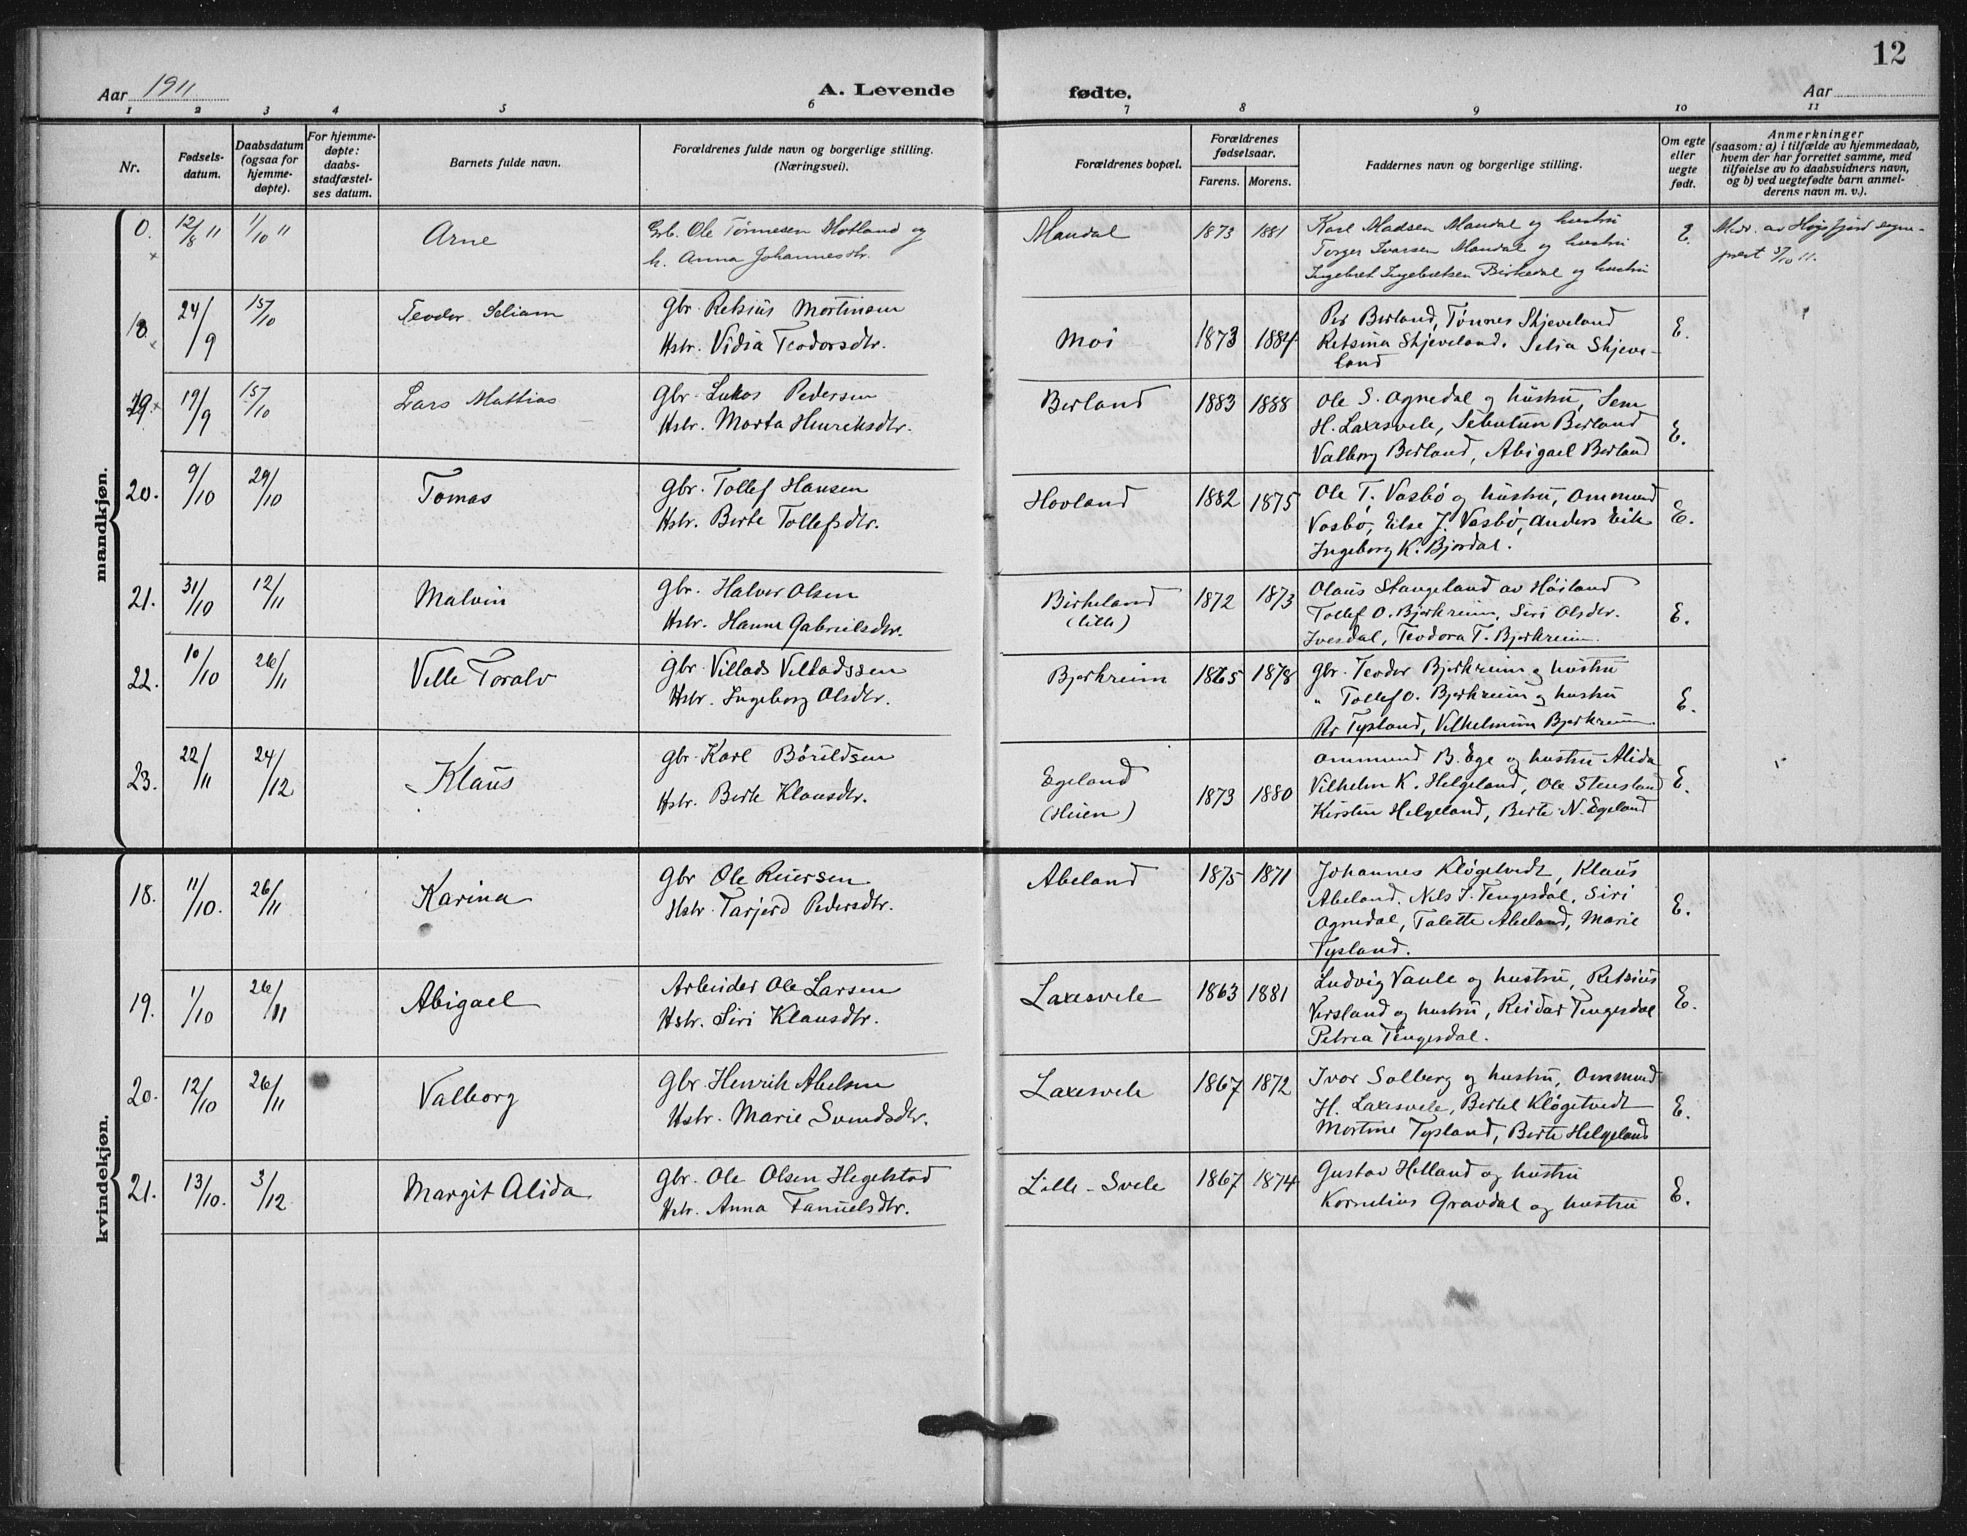 12
Aar 1911
A. Levende fødte.
Aar
1 2 3 4 5 6 7 8 9 10 11
Nr.
Fødsels-
datum.
Daabsdatum
(ogsaa for
hjemme-
døpte).
For hjemme-
døpte:
daabs-
stadfæstel-
ses datum.
Barnets fulde navn.
Forældrenes fulde navn og borgerlige stilling.
(Næringsvei).
Forældrenes bopæl.
Forældrenes
fødselsaar.
Farens. Morens.
Faddernes navn og borgerlige stilling.
Om egte
eller
uegte
født.
Anmerkninger
(saasom: a) i tilfælde av hjemmedaab,
hvem der har forrettet samme, med
tilføielse av to daabsvidners navn,
og b) ved uegtefødte barn anmel-
derens navn m. v.).
mandkjøn.
0. 12/8 " 1/10 " Arne
Ole Tønnesen Motland og
h. Anna Johannesdtr.
Mandal 1873 1881
Karl Madsen Mandal og hustru
Torger Ivarsen Mandal og hustru
Ingebret Ingebretsen Birkedal og hustru
E.
Medd. av Høgsfjord sogne-
prest 3/10 11.
18. 24/9 15/10 Teodor Seliam
Gbr. Retsius Mortinsen
Hstr. Vidia Teodorsdtr.
Moi 1873 1884
Per Berland, Tønnes Skjeveland
Retsina Skjeveland. Selia Skjeve-
land
E.
19. 19/9 15/10 Lars Mattias
Gbr. Lukas Pedersen
Hstr. Marta Henriksdtr.
Berland 1883 1888
Ole S. Ognedal og hustru, Sem
H. Laxesvele, Berland
Valborg Berland, Abigael Berland
E.
20. 9/10 29/10 Tomas
Gbr. Tollef Hansen
Hstr. Berte Tollefsdtr.
Hovland 1882 1875
Ole T. Vasbø og hustru, Ommund
Vasbø, Else J. Vasbø, Anders Eik
Ingeborg K. Bjordal.
E.
21. 31/10 12/11 Malvin
Gbr. Halvor Olsen
Hstr. Hanne Gabrielsdtr.
Birkeland
(Lille)
1872 1873
Olaus Stangeland av Høiland
Tollef O. Bjerkreim, Siri Olsdtr.
Ivesdal, Teodora T. Bjerkreim.
E.
22. 10/10 26/11 Ville Toralv
Gbr. Villads Villadssen
Hstr. Ingeborg Olsdtr.
Bjerkreim 1865 1878
Gbr. Teodor Bjerkreim og hustru
" Tollef O. Bjerkreim og hustru
Per Tysland, Vilhelmine Bjerkreim
E.
23. 22/11 24/12 Klaus
Gbr. Karl Børildsen
Hstr. Berte Klausdtr.
Egeland
(Heien)
1873 1880
Ommund B. Ege og hustru Alida
Vilhelm K. Helgeland, Ole Stensland
Kirsten Helgeland, Berte N. Egeland
E.
kvindekjøn.
18. 11/10. 26/11 Karina
Gbr Ole Reiersen
Hstr. Tarjerd Pedersdtr.
Abeland 1875 1871
Johannes Kløgetvedt, Klaus
Abeland, Nils J. Tengesdal, Siri
Ognedal, Talette Abeland, Marie
Tysland.
E.
19. 1/10 26/11 Abigael
Arbeider Ole Larsen
Hstr. Siri Klausdtr.
Laxesvele 1863 1881
Ludvig Vaule og hustru, Retsius
Versland og hustru, Reidar Tengesdal
Petrea Tengesdal.
E.
20. 12/10 26/11 Valborg
Gbr Henrik Abelsen
Hstr. Marie Svendsdtr.
Laxesvele 1867 1872
Ivar Solberg og hustru, Ommund
H. Laxesvele, Bertel Kløgetvedt
Mortine Tysland, Berte Helgeland
E.
21. 13/10. 3/12 Margit Alida
Gbr. Ole Olsen Hegelstad
Hstr. Anna Fanuelsdtr.
Lille-Svele 1867 1874
Gustav Helland og hustru
Kornelius Gravdal og hustru
E.